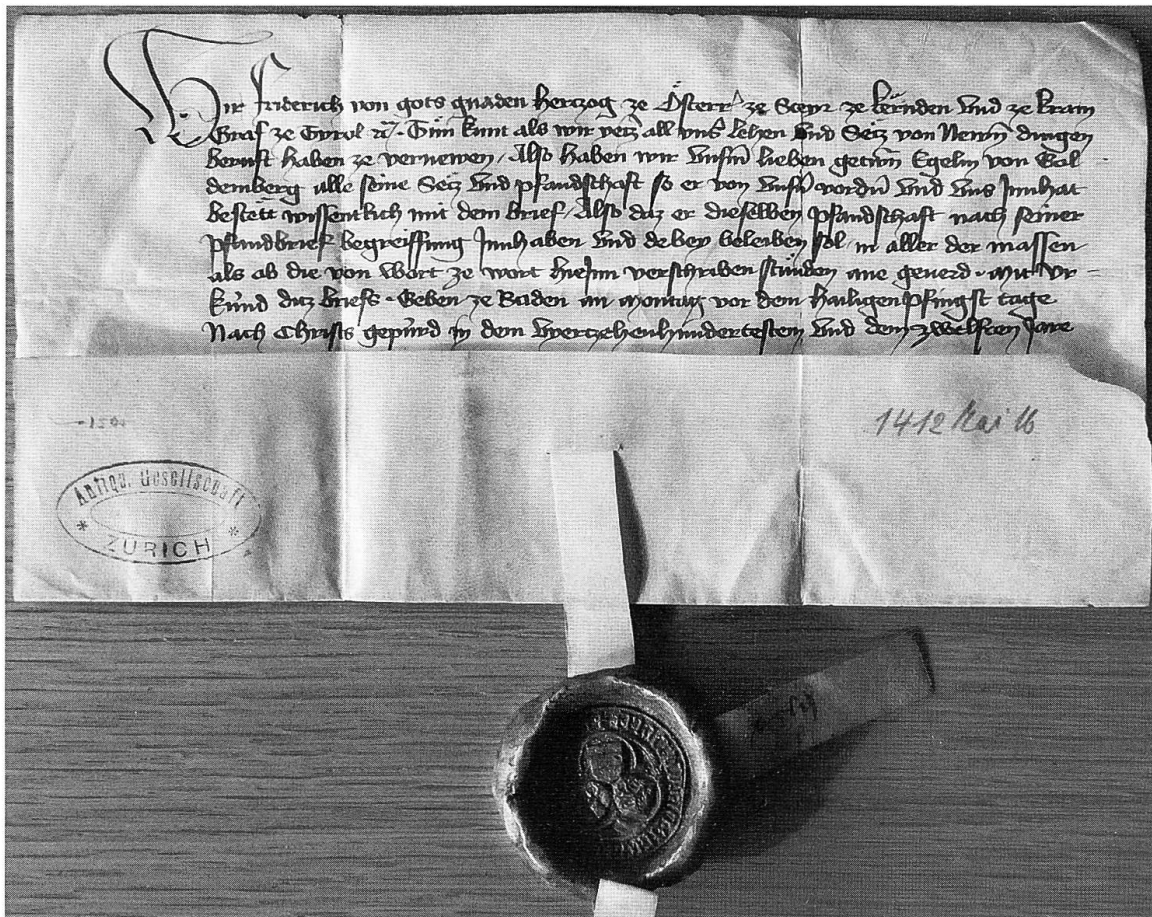 Wir Friderich von gots gnaden Hertzog ze Österr ze Steyr ze kernden Vnd ze kram
Graf ze Tyrol &c. Tün kunt als wir yetz all vnser lehen Vnd Setz von Newen dingen
beruft haben ze vernewen / Also haben wir Vnserm lieben getrwn Egelin von Gol
demberg alle seine Setz Vnd pfandschaft so er von Vnsern vordern Vnd Vns Innhat
bestett wissentlich mit dem brief / Also daz er dieselben pfandschaft nach seiner
pfandbrief begreiffung Innhaben Vnd debey beleiben sol in aller der massen
als ob die von Wort ze wort hieInn verschriben stünden ane geuerd. Mit Vr=
kund diz briefs. Geben ze Baden an Montag vor dem Heiligen pfingst tage
Nach Christs gepürd in dem Viertzehenhundertestem Vnd dem zwelften Jare
1412 Mai 16
Antiqu. Gesellschaft
* ZÜRICH *